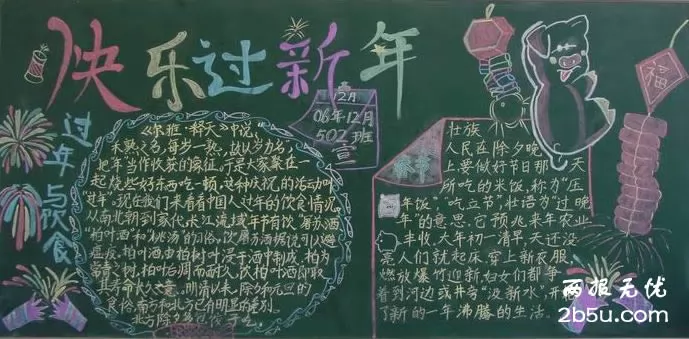 快乐过新年
12月
06年12月
502班
宣
过年与饮食
《尔雅·释天》中说:
禾熟之名,每岁一熟,故以岁为名,
把"年"当作收获的象征。于是大家聚在一
起烧些好东西吃一顿,这种庆祝的活动叫
"过年"。现在我们来看看中国人过年的饮食情况。
从南北朝到宋代,长江流域年节有饮"屠苏酒"
"柏叶酒"和"桃汤"的习俗,饮屠苏酒据说可以避
瘟疫,柏叶酒由柏树叶浸于酒中制成,柏为
常青之树,柏叶后凋而耐久,饮柏叶酒即取
其寿命长久之意。明清以来,除夕和元旦的
食俗,南方和北方已有明显的差别。
北方除夕
壮族
人民在除夕晚
上要做好节日那一天
所吃的米饭,称为"压
年饭","吃立节",壮语为"过晚
年"的意思,它预兆来年农业
丰收。大年初一清早,天还没
亮人们就起床,穿上新衣服,
燃放爆竹迎新,妇女们都争
着到河边或井旁"汲新水",开
了新的一年沸腾的生活。
福
两报无优
2b5u.com